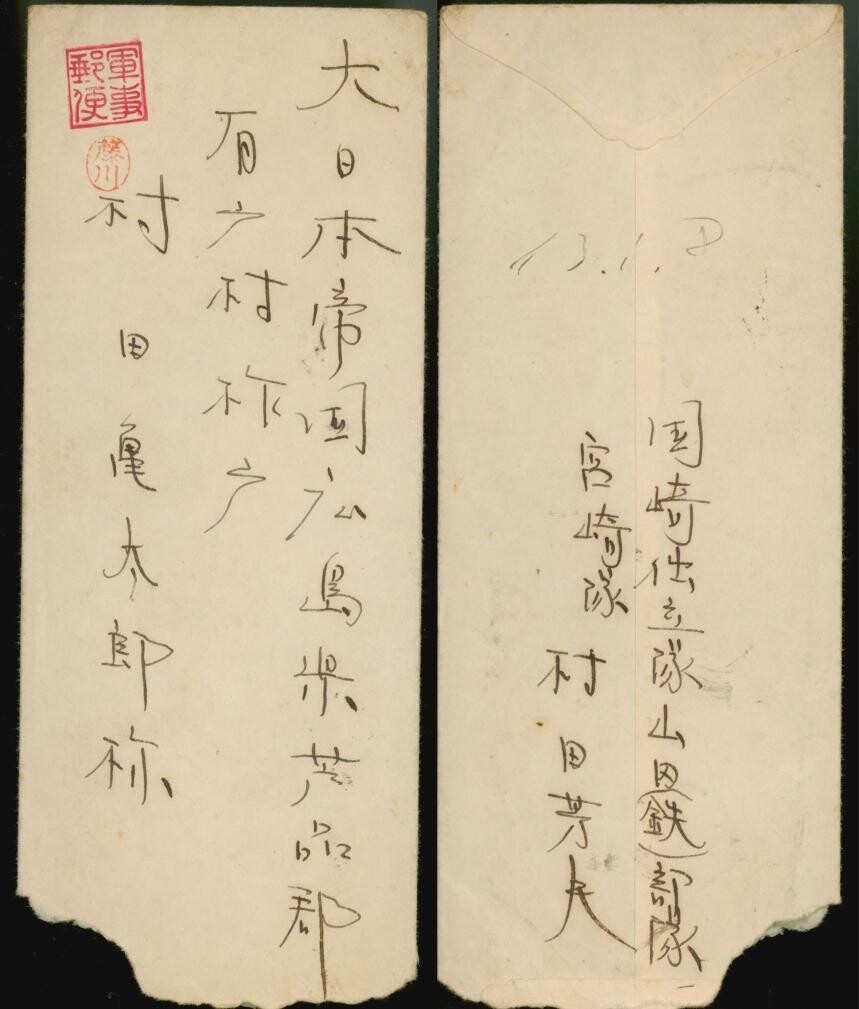 大日本帝国広島県芦品郡
有广村柞广
村田亀太郎様
軍事
郵便
藤川
13.1.8
国崎独立隊山田(鉄)部隊
宮崎隊
村田芳夫